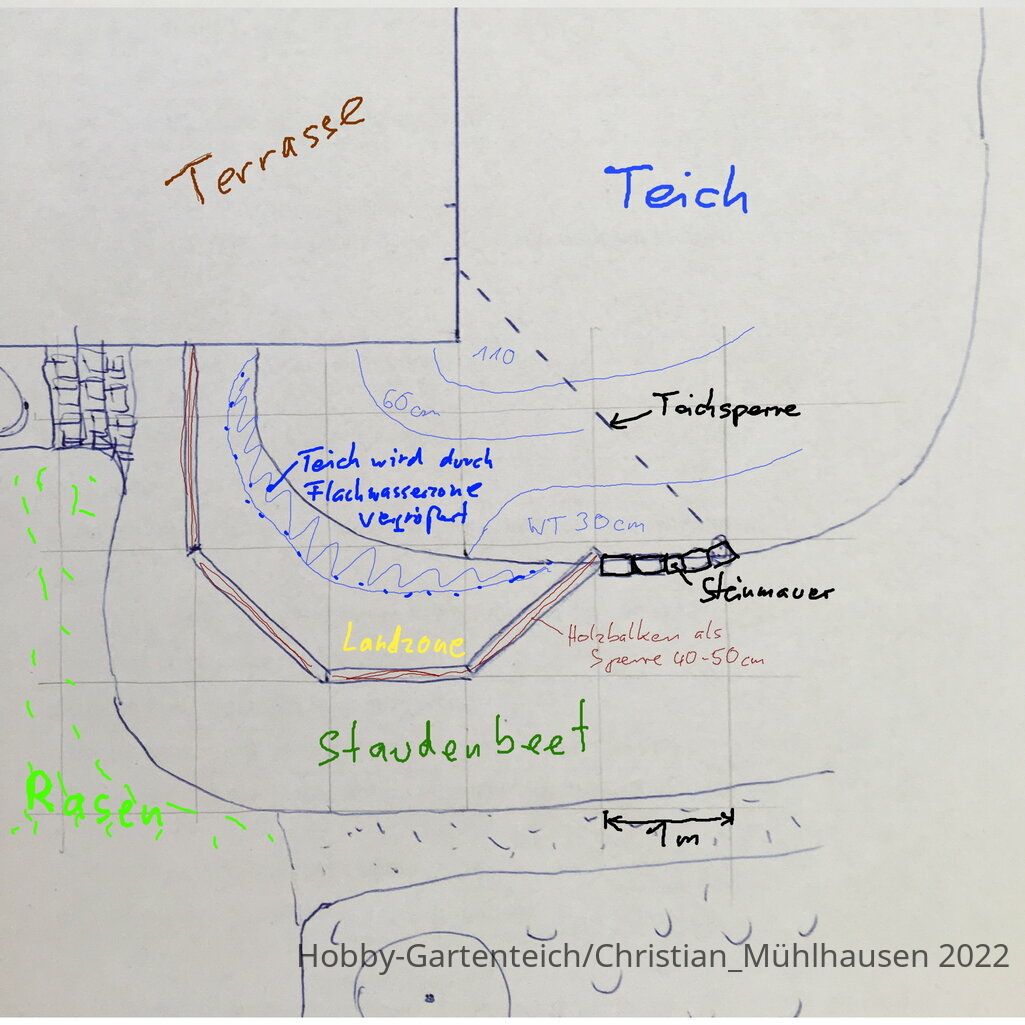 Terrasse
Teich
110
60cm
Teichsperre
Teich wird durch
Flachwasserzone
vergrößert
WT 30cm
Steinmauer
Landzone
Holzbalken als
Sperre 40-50cm
Staudenbeet
Rasen
1m
Hobby-Gartenteich/Christian_Mühlhausen 2022